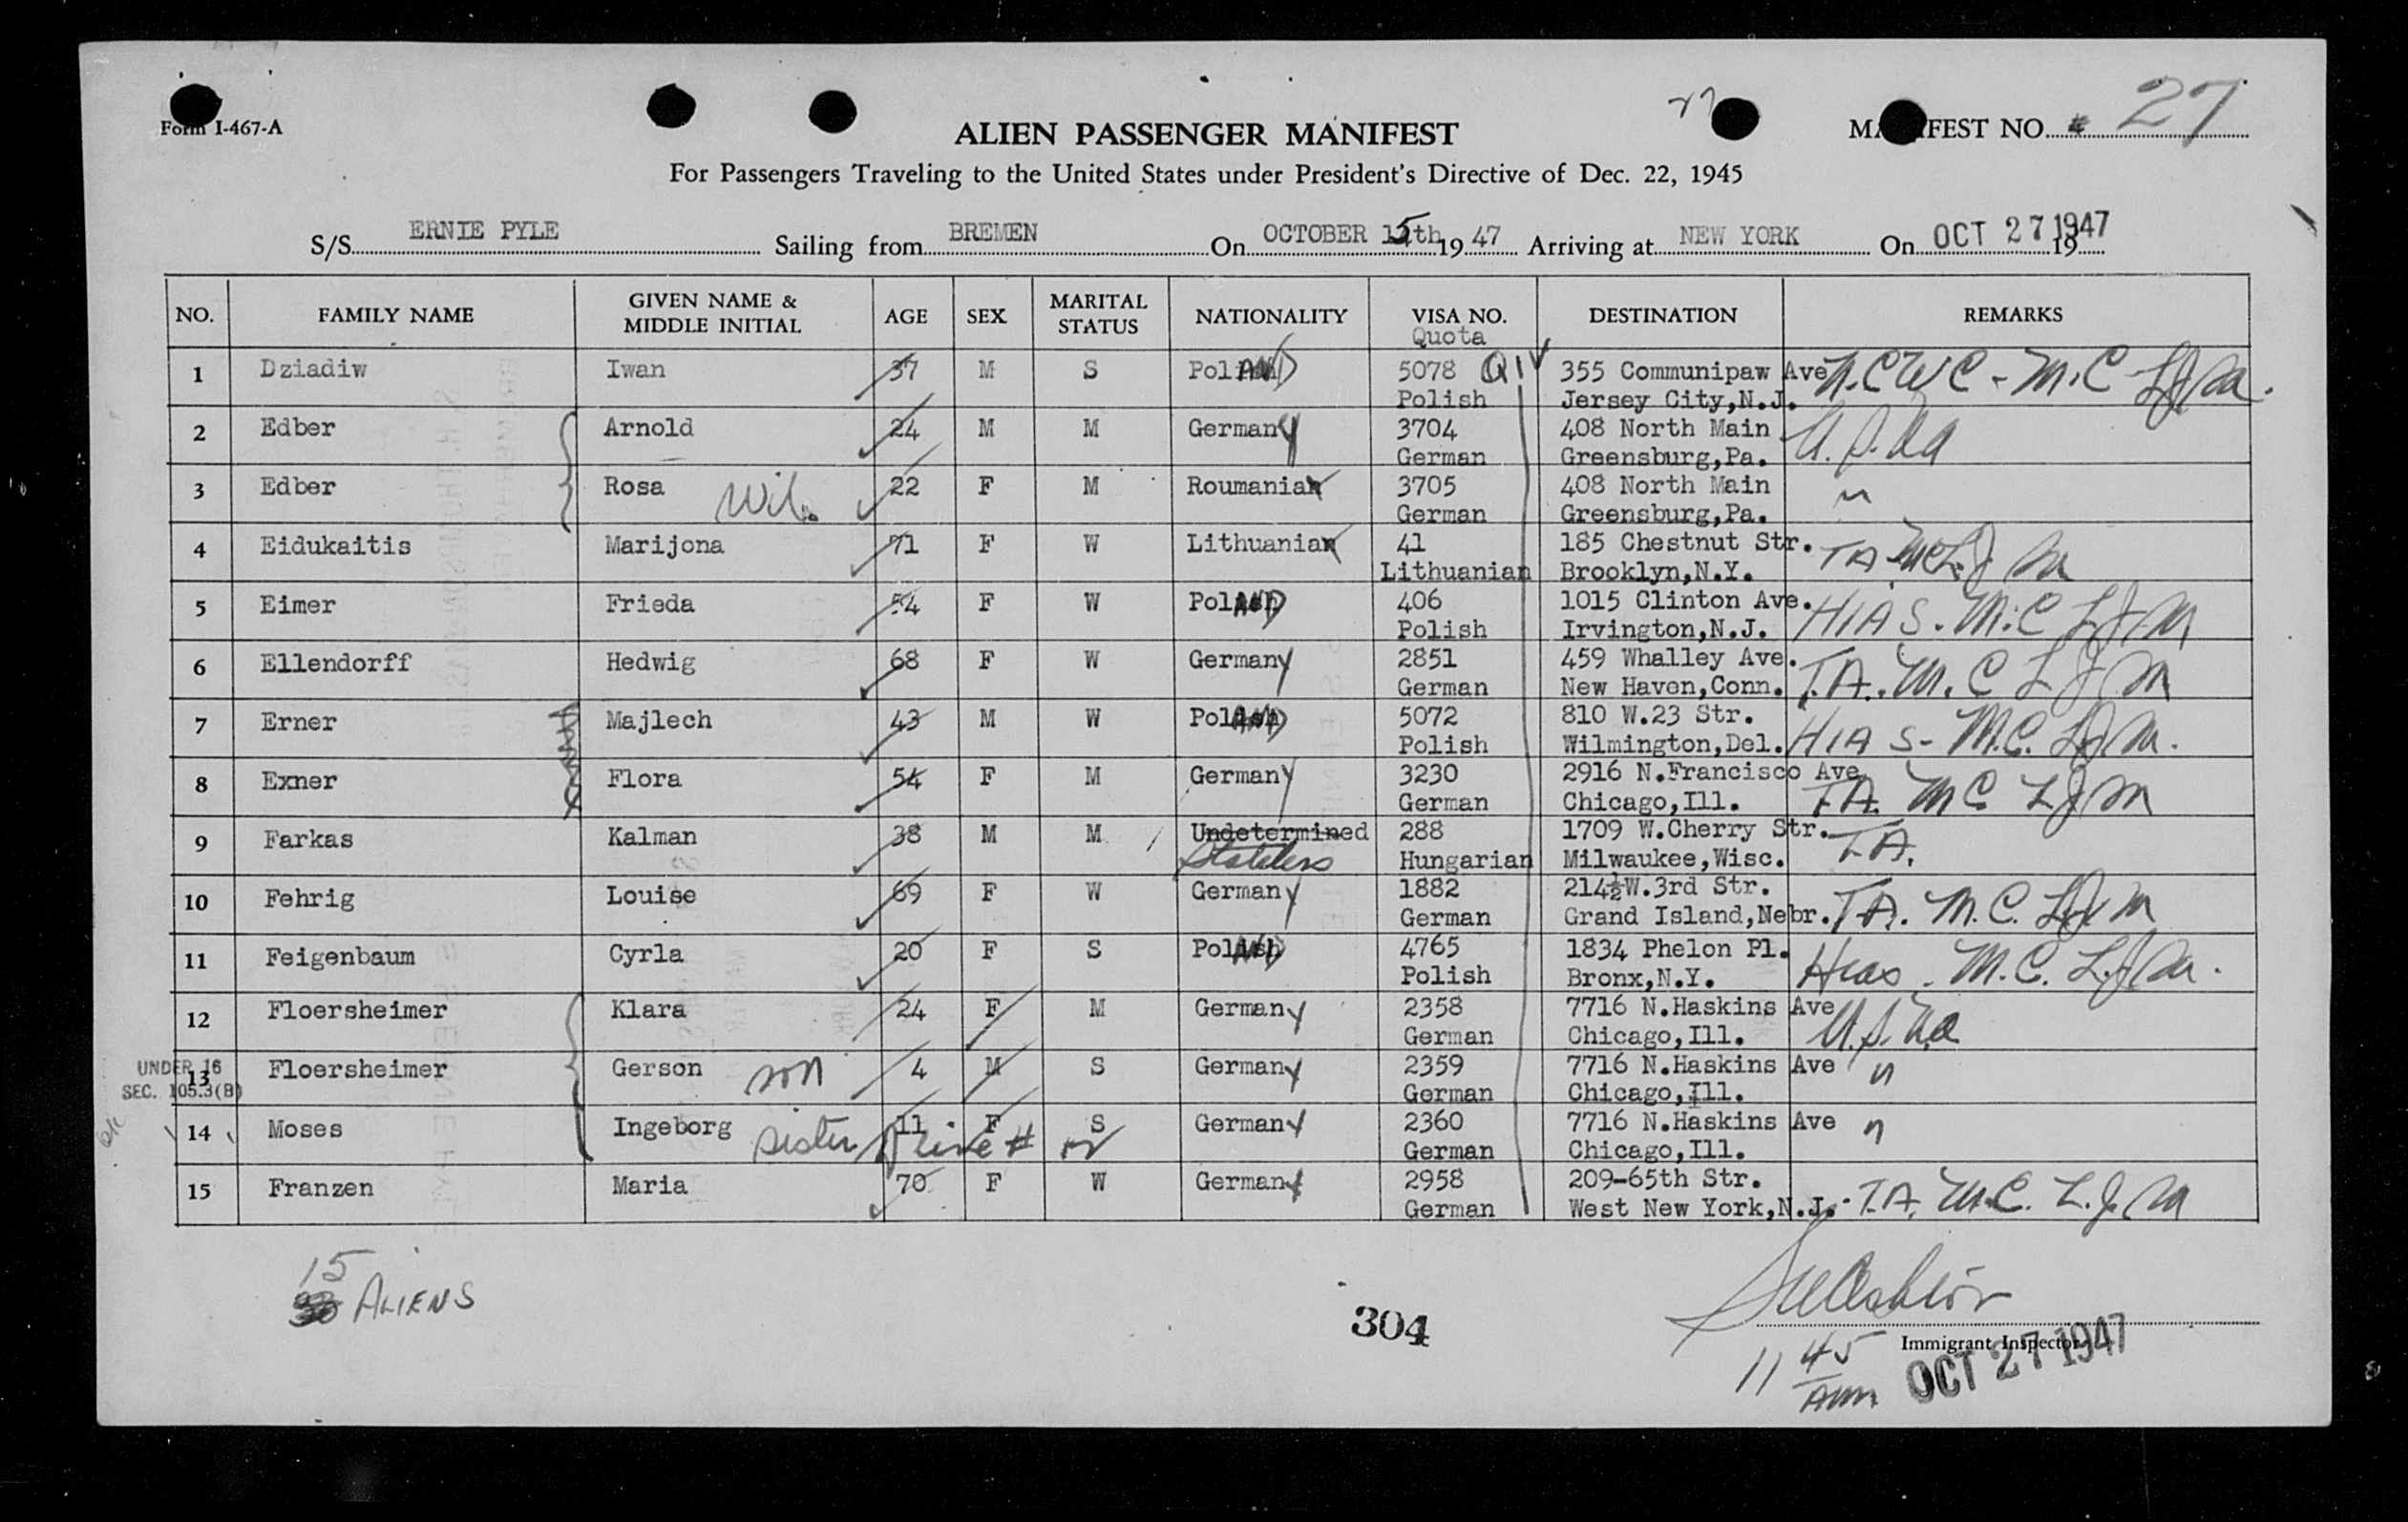 Form I-467-A
ALIEN PASSENGER MANIFEST
MANIFEST NO. 27
For Passengers Traveling to the United States under President's Directive of Dec. 22, 1945
S/S ERNIE PYLE Sailing from BREMEN On OCTOBER 15th 19 47 Arriving at NEW YORK On OCT 27 1947 19
NO. FAMILY NAME GIVEN NAME & MIDDLE INITIAL AGE SEX MARITAL STATUS NATIONALITY VISA NO. Quota DESTINATION REMARKS
1 Dziadiw Iwan 37 M S PolAND 5078 QIV 355 Communipaw Ave N.C.W.C - M.C L.J.M.
Polish Jersey City,N.J.
2 Edber Arnold 24 M M Germany 3704 408 North Main
German Greensburg,Pa.
3 Edber Rosa 22 F M Roumania 3705 408 North Main "
German Greensburg,Pa.
4 Eidukaitis Marijona 71 F W Lithuania 41 185 Chestnut Str. TA MC L.J M
Lithuanian Brooklyn,N.Y.
5 Eimer Frieda 54 F W PolAND 406 1015 Clinton Ave. HIAS. M.C L J M
Polish Irvington,N.J.
6 Ellendorff Hedwig 68 F W Germany 2851 459 Whalley Ave. T.A. M. C L J M
German New Haven,Conn.
7 Erner Majlech 43 M W PolAND 5072 810 W.23 Str. HIAS - M.C. L J M.
Polish Wilmington,Del.
8 Exner Flora 54 F M Germany 3230 2916 N.Francisco Ave T.A. M C L J M
German Chicago,Ill.
9 Farkas Kalman 38 M M Undetermined 288 1709 W.Cherry Str. T.A.
Stateless Hungarian Milwaukee,Wisc.
10 Fehrig Louise 69 F W Germany 1882 214½W.3rd Str. T.A. M.C. L J M
German Grand Island,Nebr.
11 Feigenbaum Cyrla 20 F S PolAND 4765 1834 Phelon Pl. Hias. M.C. L.J M.
Polish Bronx,N.Y.
12 Floersheimer Klara 24 F M Germany 2358 7716 N.Haskins Ave
German Chicago,Ill.
UNDER 16
SEC. 105.3(B)
13 Floersheimer Gerson son 4 M S Germany 2359 7716 N.Haskins Ave "
German Chicago,Ill.
14 Moses Ingeborg sister 11 F S Germany 2360 7716 N.Haskins Ave "
line #
German Chicago,Ill.
15 Franzen Maria 70 F W Germany 2958 209-65th Str. T.A. M.C. L.J. M
German West New York,N.J.
15 ALIENS
304
Immigrant Inspector
11 45 AM
OCT 27 1947